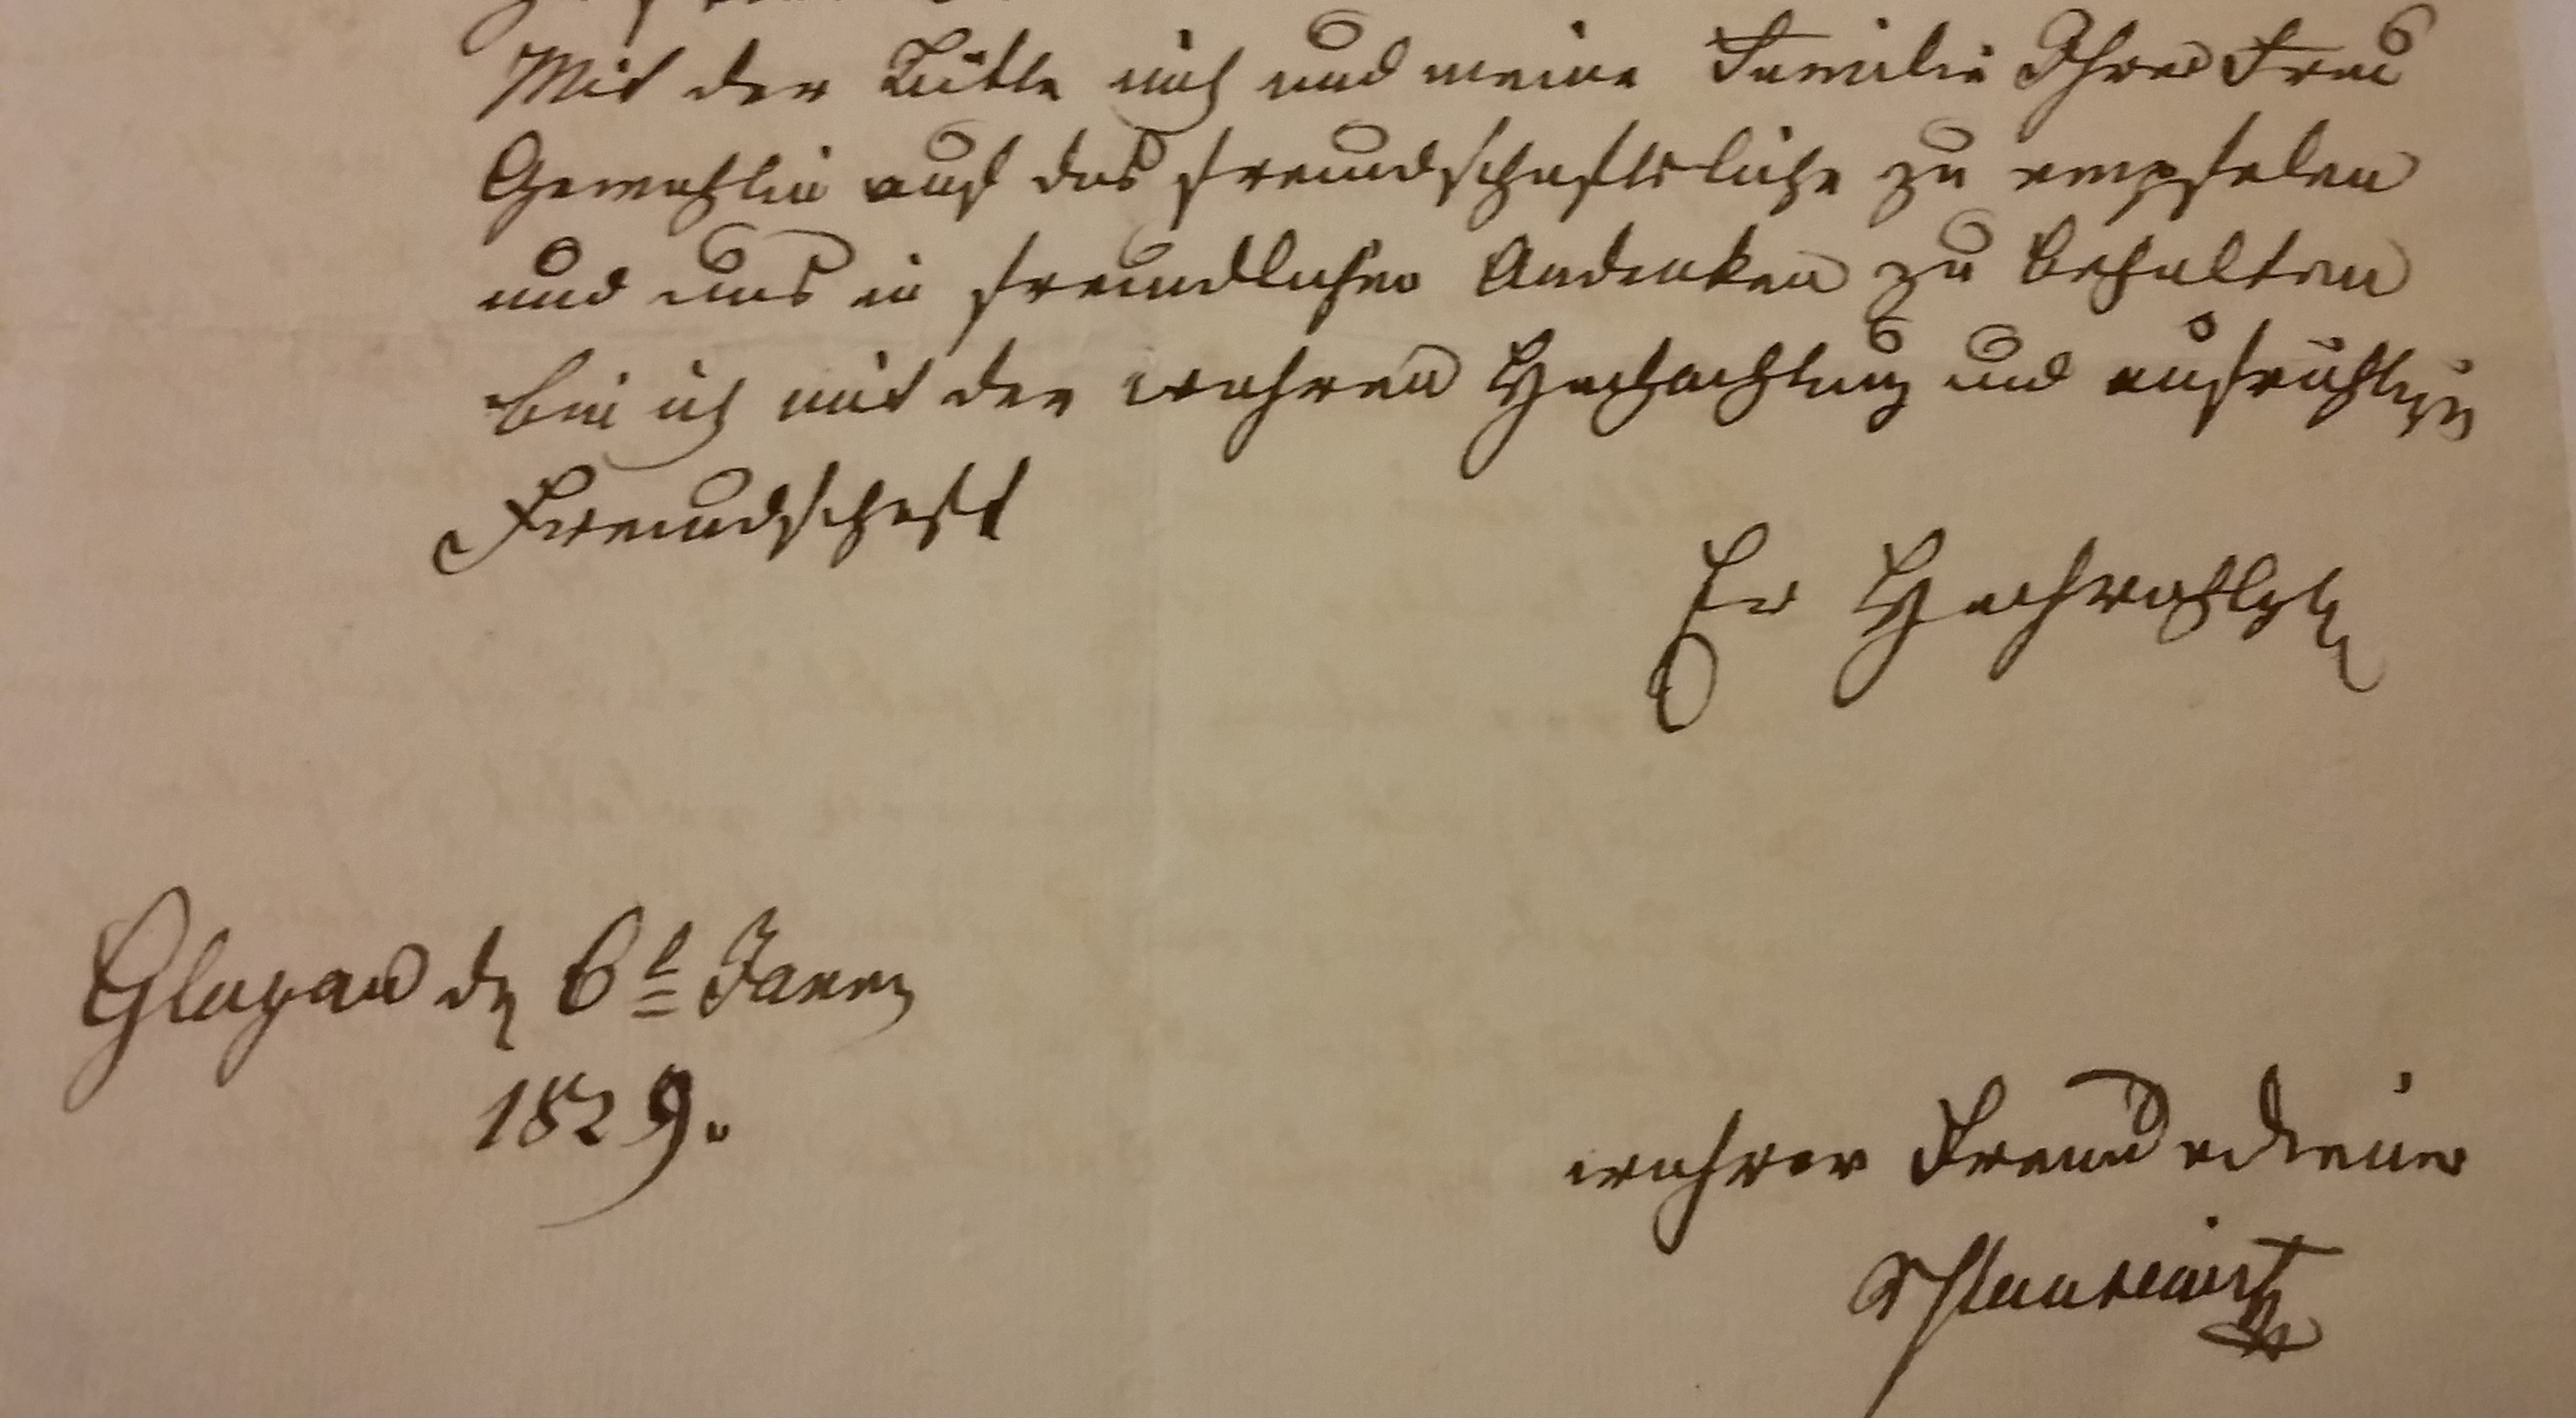 Mit der Bitte mich und meine Familie Ihrer Frau
Gemahlin auf das freundschaftlichste zu empfelen
und uns in freundlichen Andenken zu behalten
bin ich mit der wahren Hochachtung und aufrichtigen
Freundschaft
Ew Hochwohlgb
Glogau den 6t Janr
1829.
wahrer Freund u diener